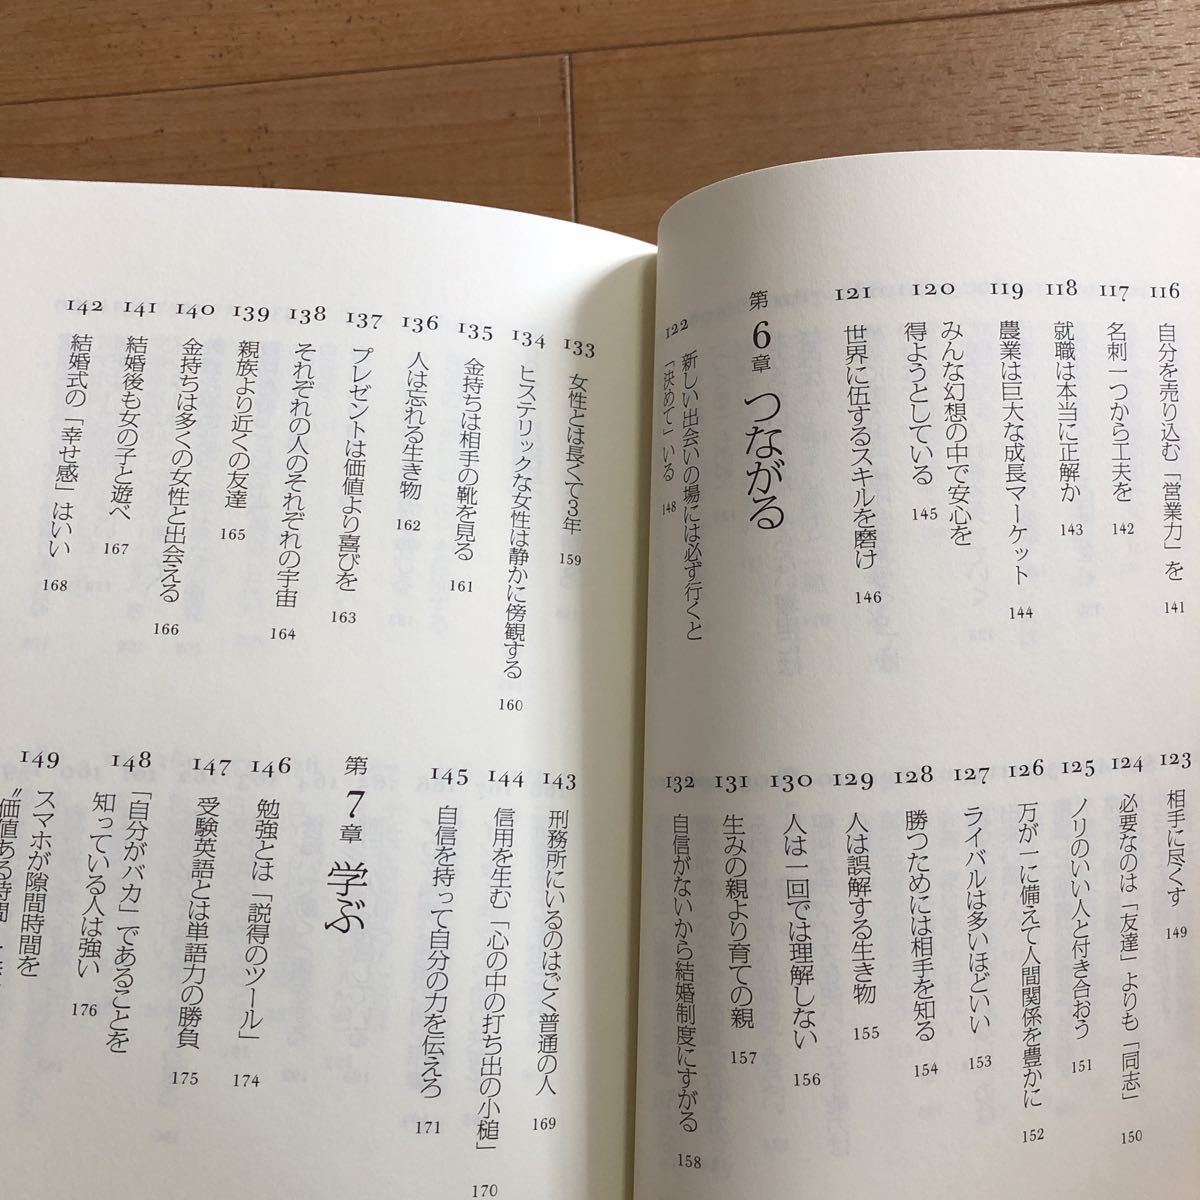 116 自分を売り込む「営業力」を 141
117 名刺一つから工夫を 142
118 就職は本当に正解か 143
119 農業は巨大な成長マーケット 144
120 みんな幻想の中で安心を
得ようとしている 145
121 世界に伍するスキルを磨け 146
第6章 つながる
122 新しい出会いの場には必ず行くと
「決めて」いる 148
123 相手に尽くす 149
124 必要なのは「友達」よりも「同志」 150
125 ノリのいい人と付き合おう 151
126 万が一に備えて人間関係を豊かに 152
127 ライバルは多いほどいい 153
128 勝つためには相手を知る 154
129 人は誤解する生き物 155
130 人は一回では理解しない 156
131 生みの親より育ての親 157
132 自信がないから結婚制度にすがる 158
133 女性とは長くて3年 159
134 ヒステリックな女性は静かに傍観する 160
135 金持ちは相手の靴を見る 161
136 人は忘れる生き物 162
137 プレゼントは価値より喜びを 163
138 それぞれの人のそれぞれの宇宙 164
139 親族より近くの友達 165
140 金持ちは多くの女性と出会える 166
141 結婚後も女の子と遊べ 167
142 結婚式の「幸せ感」はいい 168
143 刑務所にいるのはごく普通の人 169
144 信用を生む「心の中の打ち出の小槌」 170
145 自信を持って自分の力を伝えろ 171
第7章 学ぶ
146 勉強とは「説得のツール」 174
147 受験英語とは単語力の勝負 175
148 「自分がバカ」であることを
知っている人は強い 176
149 スマホが隙間時間を
〝価値ある時間